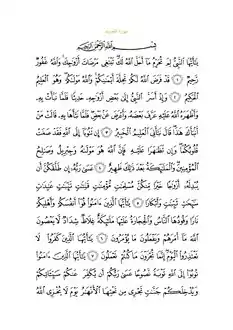 سُورَةُ التَّحْرِيمِ
بِسْمِ ٱللَّهِ ٱلرَّحْمَٰنِ ٱلرَّحِيمِ
يَٰٓأَيُّهَا ٱلنَّبِيُّ لِمَ تُحَرِّمُ مَآ أَحَلَّ ٱللَّهُ لَكَ تَبْتَغِي مَرْضَاتَ أَزْوَٰجِكَ وَٱللَّهُ غَفُورٌ
رَّحِيمٌ ١ قَدْ فَرَضَ ٱللَّهُ لَكُمْ تَحِلَّةَ أَيْمَٰنِكُمْ وَٱللَّهُ مَوْلَىٰكُمْ وَهُوَ ٱلْعَلِيمُ
ٱلْحَكِيمُ ٢ وَإِذْ أَسَرَّ ٱلنَّبِيُّ إِلَىٰ بَعْضِ أَزْوَٰجِهِۦ حَدِيثًا فَلَمَّا نَبَّأَتْ بِهِۦ
وَأَظْهَرَهُ ٱللَّهُ عَلَيْهِ عَرَّفَ بَعْضَهُۥ وَأَعْرَضَ عَنۢ بَعْضٍ فَلَمَّا نَبَّأَهَا بِهِۦ قَالَتْ مَنْ
أَنۢبَأَكَ هَٰذَا قَالَ نَبَّأَنِيَ ٱلْعَلِيمُ ٱلْخَبِيرُ ٣ إِن تَتُوبَآ إِلَى ٱللَّهِ فَقَدْ صَغَتْ
قُلُوبُكُمَا وَإِن تَظَٰهَرَا عَلَيْهِ فَإِنَّ ٱللَّهَ هُوَ مَوْلَىٰهُ وَجِبْرِيلُ وَصَٰلِحُ
ٱلْمُؤْمِنِينَ وَٱلْمَلَٰٓئِكَةُ بَعْدَ ذَٰلِكَ ظَهِيرٌ ٤ عَسَىٰ رَبُّهُۥٓ إِن طَلَّقَكُنَّ أَن
يُبْدِلَهُۥٓ أَزْوَٰجًا خَيْرًا مِّنكُنَّ مُسْلِمَٰتٍ مُّؤْمِنَٰتٍ قَٰنِتَٰتٍ تَٰٓئِبَٰتٍ عَٰبِدَٰتٍ
سَٰٓئِحَٰتٍ ثَيِّبَٰتٍ وَأَبْكَارًا ٥ يَٰٓأَيُّهَا ٱلَّذِينَ ءَامَنُوا۟ قُوٓا۟ أَنفُسَكُمْ وَأَهْلِيكُمْ
نَارًا وَقُودُهَا ٱلنَّاسُ وَٱلْحِجَارَةُ عَلَيْهَا مَلَٰٓئِكَةٌ غِلَاظٌ شِدَادٌ لَّا يَعْصُونَ
ٱللَّهَ مَآ أَمَرَهُمْ وَيَفْعَلُونَ مَا يُؤْمَرُونَ ٦ يَٰٓأَيُّهَا ٱلَّذِينَ كَفَرُوا۟ لَا
تَعْتَذِرُوا۟ ٱلْيَوْمَ إِنَّمَا تُجْزَوْنَ مَا كُنتُمْ تَعْمَلُونَ ٧ يَٰٓأَيُّهَا ٱلَّذِينَ ءَامَنُوا۟
تُوبُوٓا۟ إِلَى ٱللَّهِ تَوْبَةً نَّصُوحًا عَسَىٰ رَبُّكُمْ أَن يُكَفِّرَ عَنكُمْ سَيِّـَٔاتِكُمْ
وَيُدْخِلَكُمْ جَنَّٰتٍ تَجْرِي مِن تَحْتِهَا ٱلْأَنْهَٰرُ يَوْمَ لَا يُخْزِي ٱللَّهُ